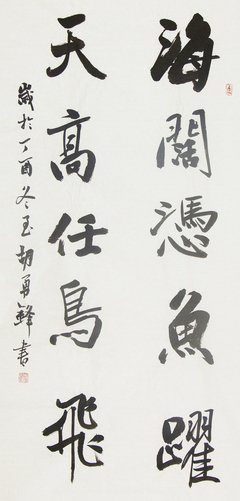 海闊憑魚躍
天高任鳥飛
歲於丁酉冬玉胡勇鋒書